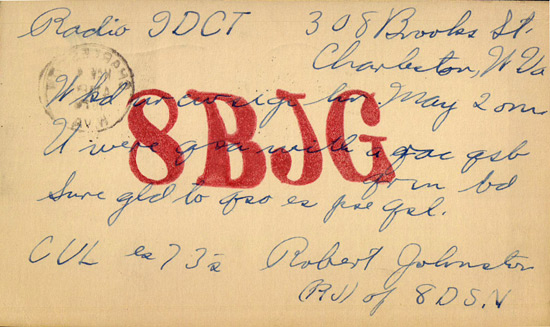 Radio 9DCT 308 Brooks St.
Charleston, W Va
Wkd ur cw sigs hr May 2 om.
8BJG
U were qsa with a rac qsb
frm bd
Sure gld to qso es pse qsl.
CUL es 73's Robert Johnston
(RJ) of 8DSN